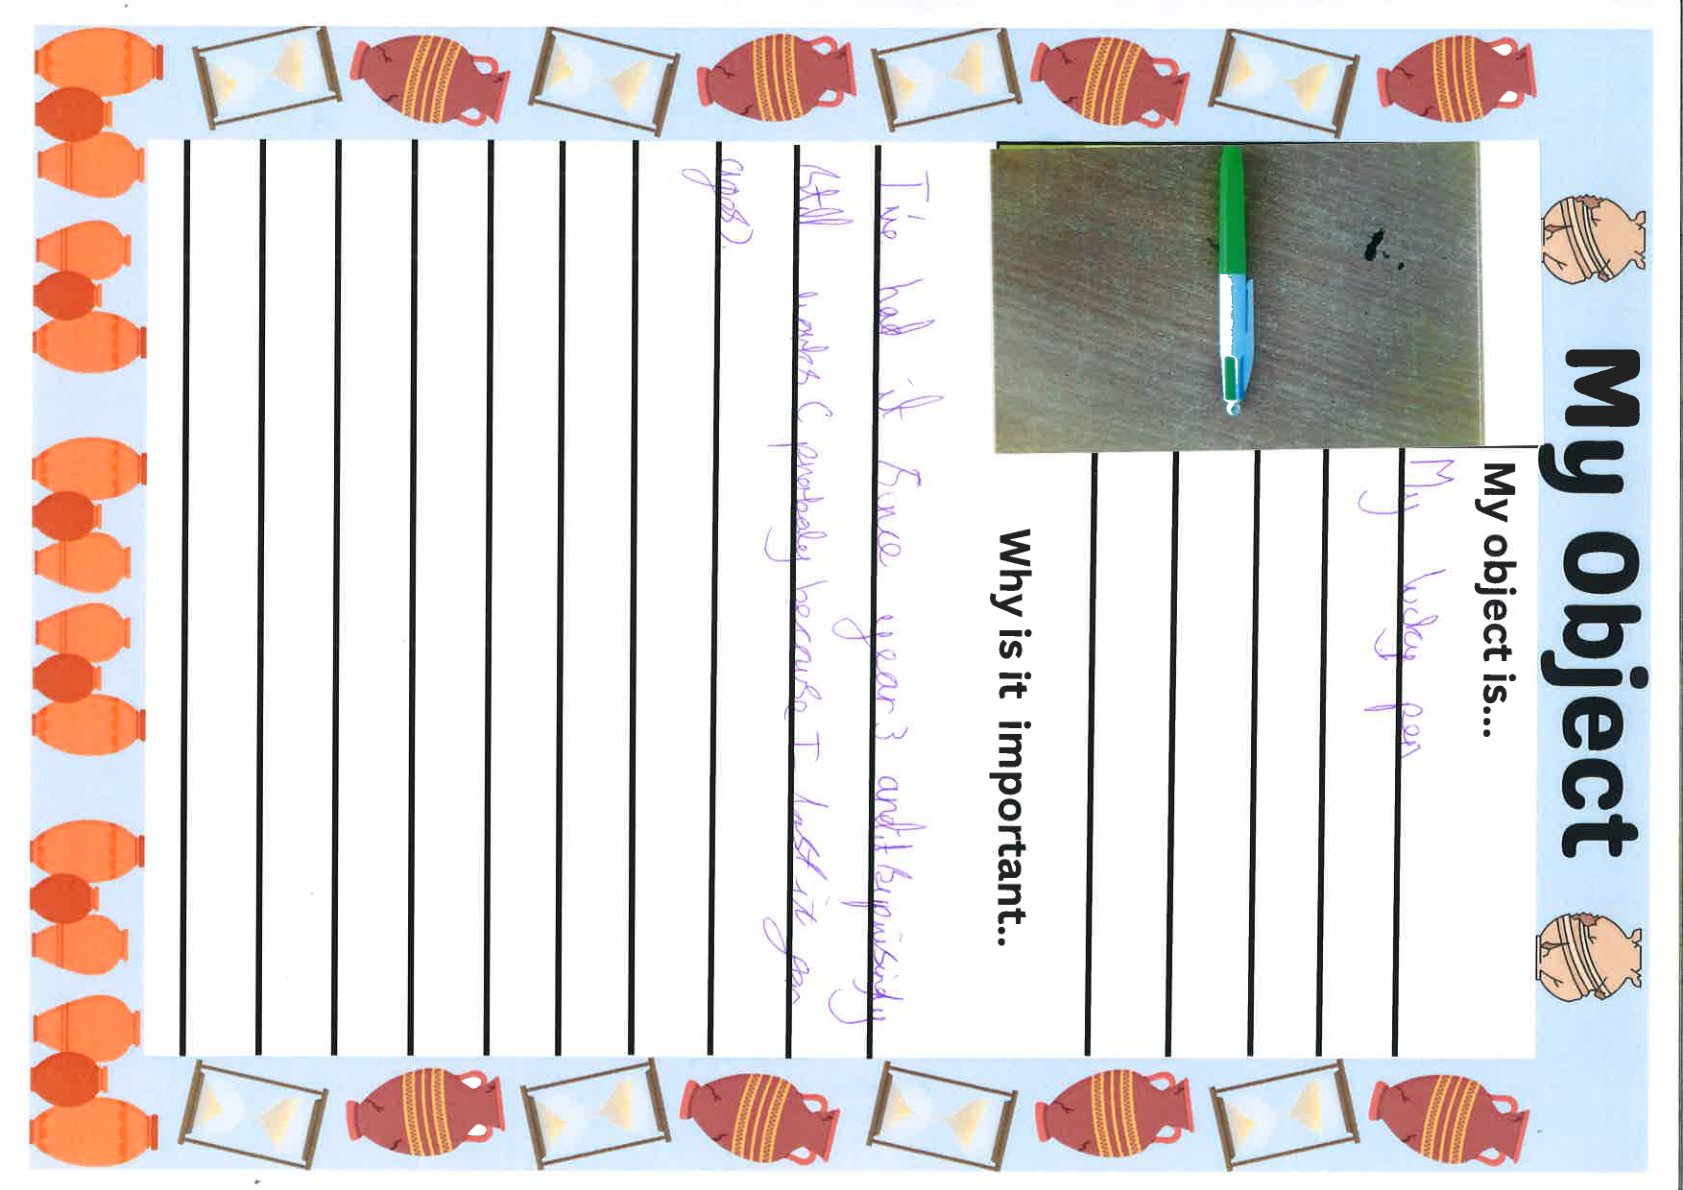 My Object
My object is...
My lucky pen
Why is it important..
I've had it since year 3 and it suprisingly
still works ( probaly because I lost it for
ages).